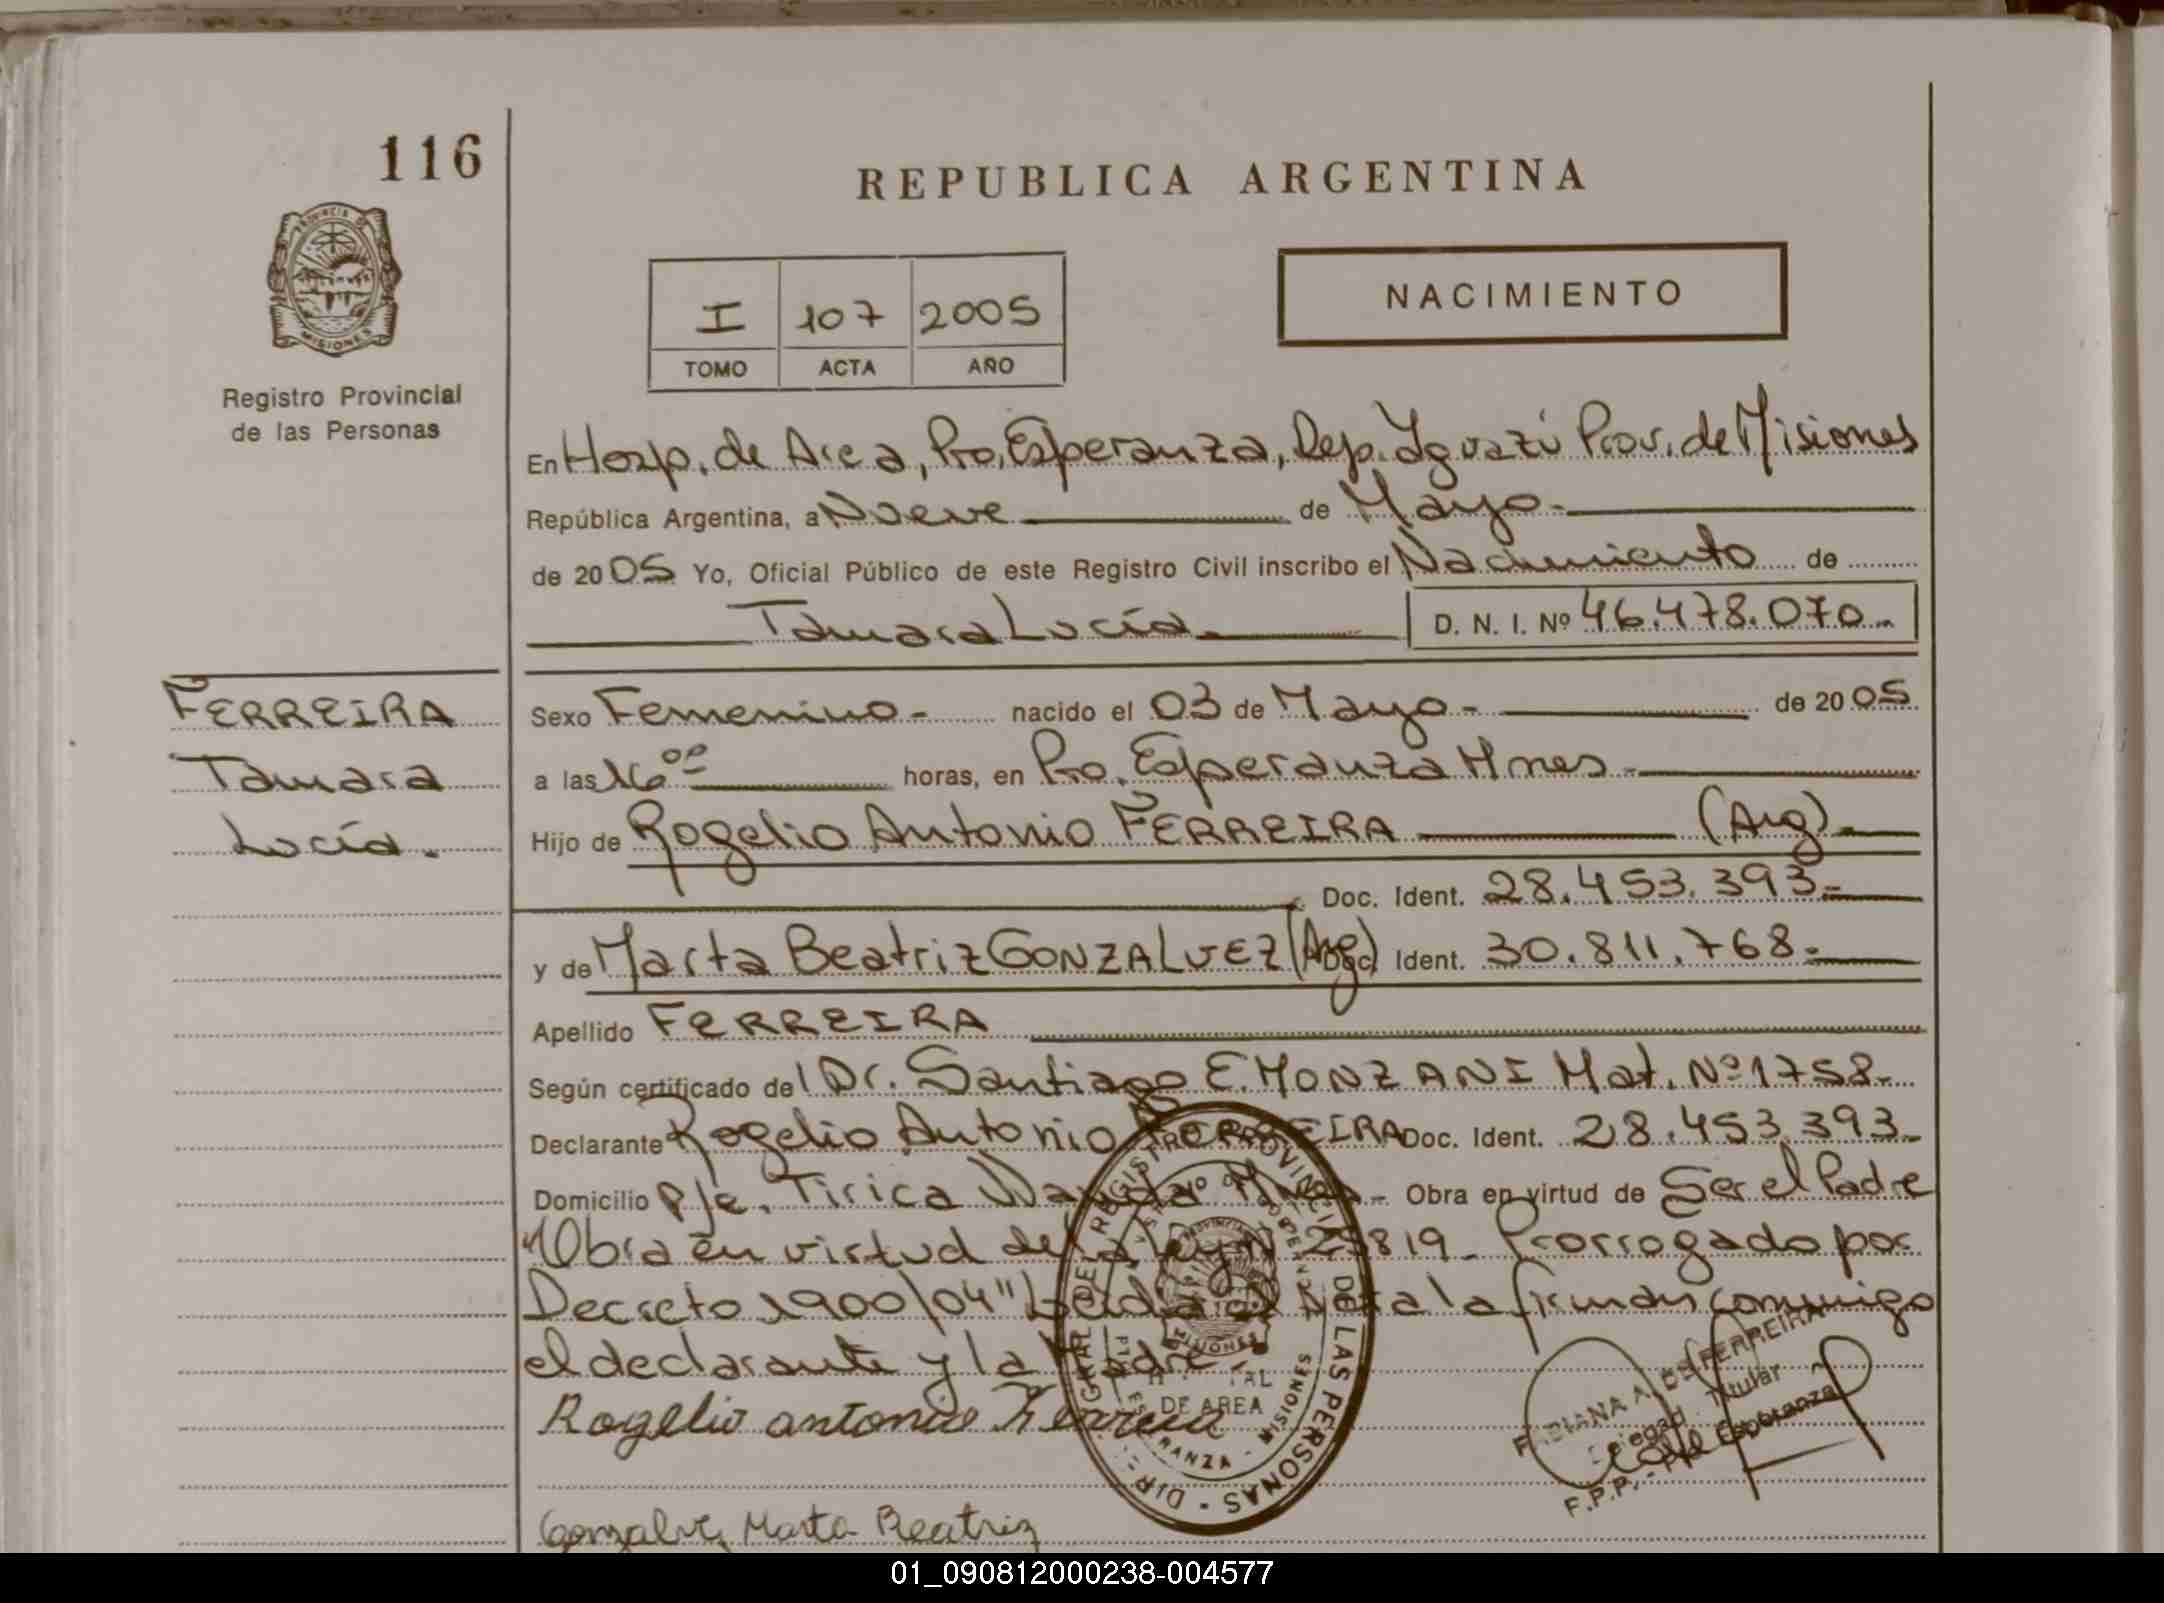 116
REPUBLICA ARGENTINA
PROVINCIA DE
MISIONES
I 107 2005
TOMO ACTA AÑO
NACIMIENTO
Registro Provincial
de las Personas
En Hosp. de Area, Pto. Esperanza, Dep. Iguazú Prov. de Misiones
República Argentina, a Nueve de Mayo.-
de 20 05 Yo, Oficial Público de este Registro Civil inscribo el Nacimiento de
Tamara Lucía.
D. N. I. Nº 46.478.070.-
FERREIRA
Tamara
Lucía.
Sexo Femenino.- nacido el 03 de Mayo.- de 20 05
a las 16 oo horas, en Pto. Esperanza Mnes.-
Hijo de Rogelio Antonio FERREIRA (Arg).-
Doc. Ident. 28.453.393.-
y de Marta Beatriz GONZALVEZ (Arg) Doc. Ident. 30.811.768.-
Apellido FERREIRA
Según certificado del Dr. Santiago E. MONZANI Mat. Nº 1758.-
Declarante Rogelio Antonio FERREIRA Doc. Ident. 28.453.393.-
Domicilio Pje. Tirica Wanda Mnes.- Obra en virtud de Ser el Padre
"Obra en virtud de la ley Nº 25819- Prorrogado por
Decreto 1900/04" Leída el Acta la firman conmigo
el declarante y la Madre
Rogelio antonio Ferreira
Gonzalvez Marta Beatriz
DIR. GRAL. DEL REGISTRO PROVINCIAL DE LAS PERSONAS
DE AREA
ESPERANZA - MISIONES
MISIONES
FABIANA A. DE FERREIRA
Delegada Titular
R.P.P. - Pto. Esperanza
01_090812000238-004577